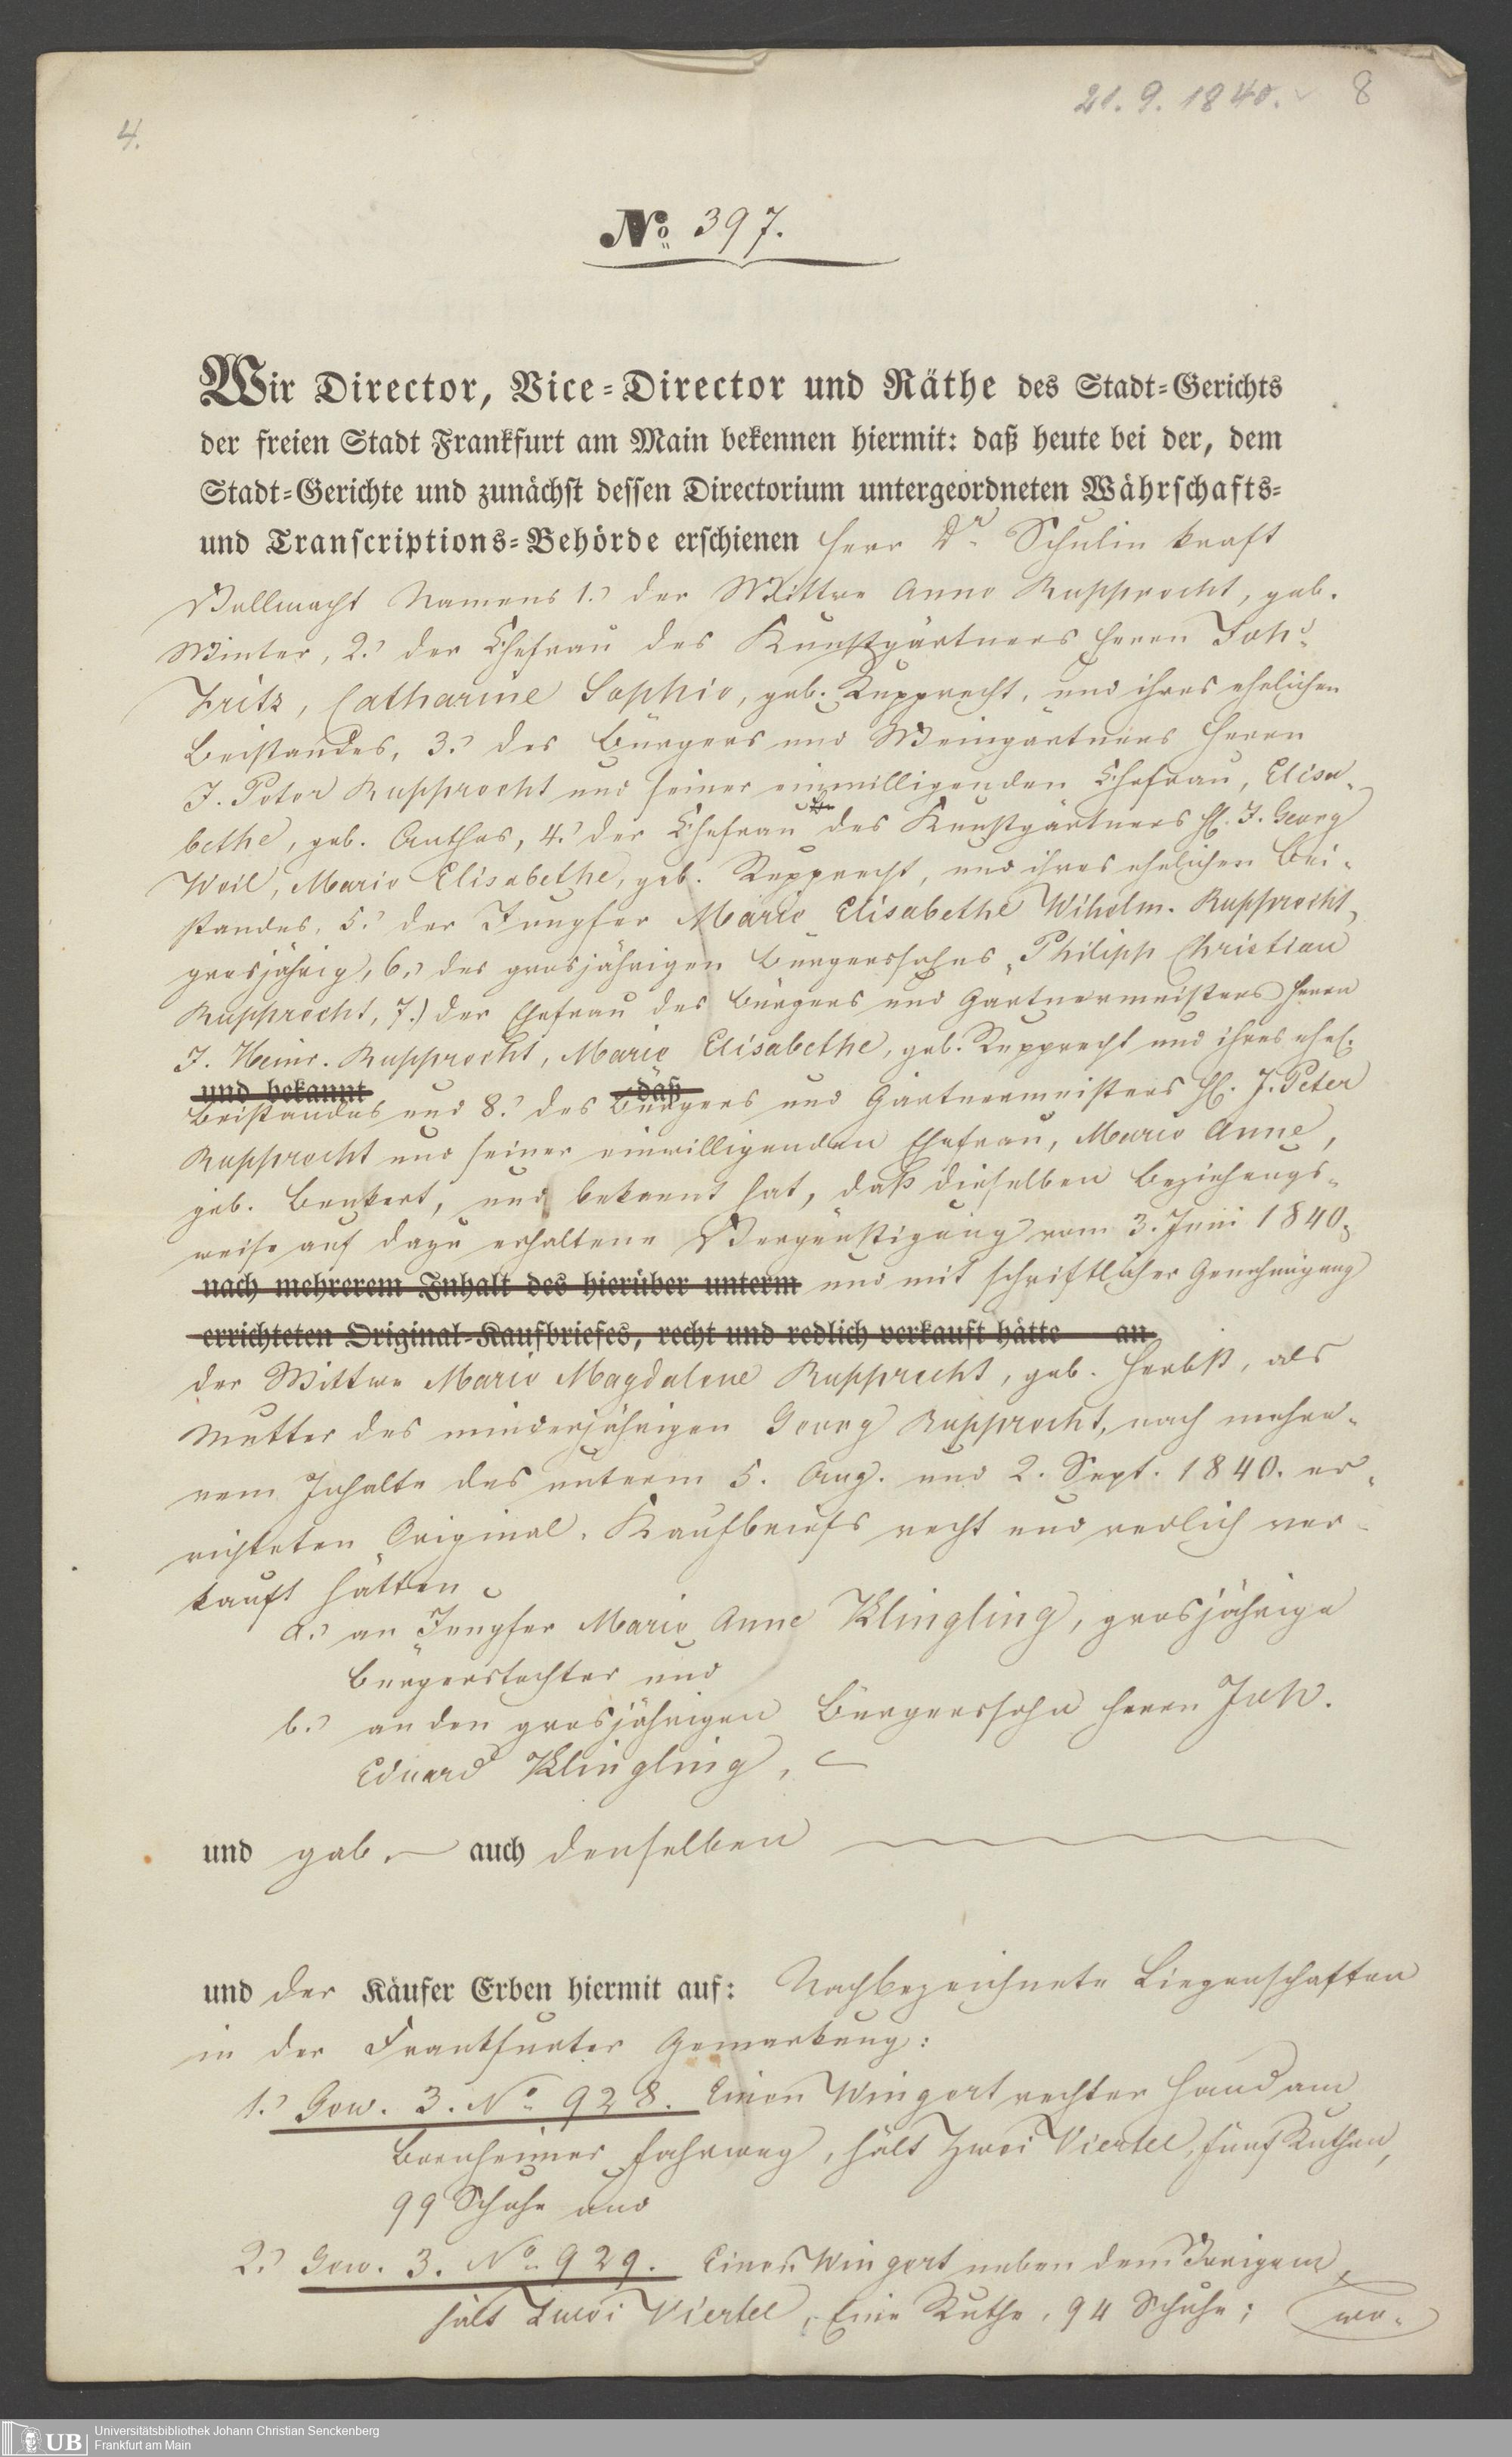 21.9.1840. 8
4.
No. 397.
Wir Director, Vice-Director und Räthe des Stadt-Gerichts
der freien Stadt Frankfurt am Main bekennen hiermit: daß heute bei der, dem
Stadt-Gerichte und zunächst dessen Directorium untergeordneten Währschafts-
und Transcriptions-Behörde erschienen Herr Dr. Schulin kraft
Vollmacht Namens 1.) der Wittwe Anna Rupprecht, geb.
Winter, 2.) der Ehefrau des Kunstgärtners Herrn Joh.
Fritz, Catharine Sophie, geb. Rupprecht, und ihres ehelichen
Beistandes, 3.) des Bürgers und Weingärtners Herrn
J. Peter Rupprecht und seiner einwilligenden Ehefrau, Elisa-
bethe, geb. Anthes, 4.) der Ehefrau des Kunstgärtners H. J. Georg
Weil, Marie Elisabethe, geb. Rupprecht, und ihres ehelichen Bei-
standes, 5.) der Jungfer Marie Elisabethe Wilhelm. Rupprecht,
grosjährig, 6.) des grosjährigen Bürgerssohnes, Philipp Christian
Rupprecht, 7.) der Ehefrau des Bürgers und Gärtnermeisters Herrn
J. Heinr. Rupprecht, Marie Elisabethe, geb. Rupprecht und ihres ehel.
und bekannt daß
Beistandes und 8.) des Bürgers und Gärtnermeisters H. J. Peter
Rupprecht und seiner einwilligenden Ehefrau, Marie Anne,
geb. Benkert, und bekannt hat, daß dieselben beziehungs-
weise auf dazu erhaltene Vergünstigung vom 3. Juni 1840,
nach mehrerem Inhalt des hierüber unterm und mit schriftlicher Genehmigung
errichteten Original-Kaufbriefes, recht und redlich verkauft hätte an
der Wittwe Marie Magdalene Rupprecht, geb. Herbst, als
Mutter des minderjährigen Georg Rupprecht, nach mehre-
rem Inhalte des unterm 5. Aug. und 2. Sept. 1840. er-
richteten Original-Kaufbriefs recht und redlich ver-
kauft hätten
a.) an Jungfer Marie Anne Klingling, grosjährige
Bürgerstochter und
b.) an den grosjährigen Bürgerssohn Herrn Joh.
Eduard Klingling,
und gab auch denselben
und der Käufer Erben hiermit auf: Nachbezeichnete Liegenschaften
in der Frankfurter Gemarkung:
1.) Gew. 3. No. 928. Einen Wingert rechter Hand am
Bornheimer Fahrweg, hält Zwei Viertel, fünf Ruthen,
99 Schuhe und
2.) Gew. 3. No. 929. Einen Wingert neben dem Vorigen,
hält Zwei Viertel, Eine Ruthe, 94 Schuhe; wo-
Universitätsbibliothek Johann Christian Senckenberg
UB Frankfurt am Main